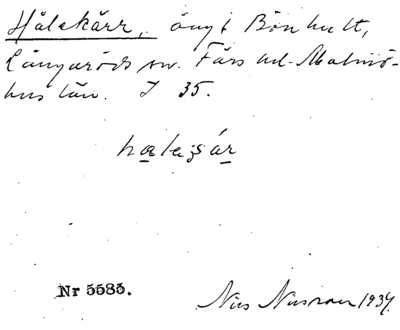 Hålekärr, ängt Bönhult,
Långaröds sn. Färs hd. Malmö-
hus län. I 35.
Nr 5585.
Nils Nilsson 1934.